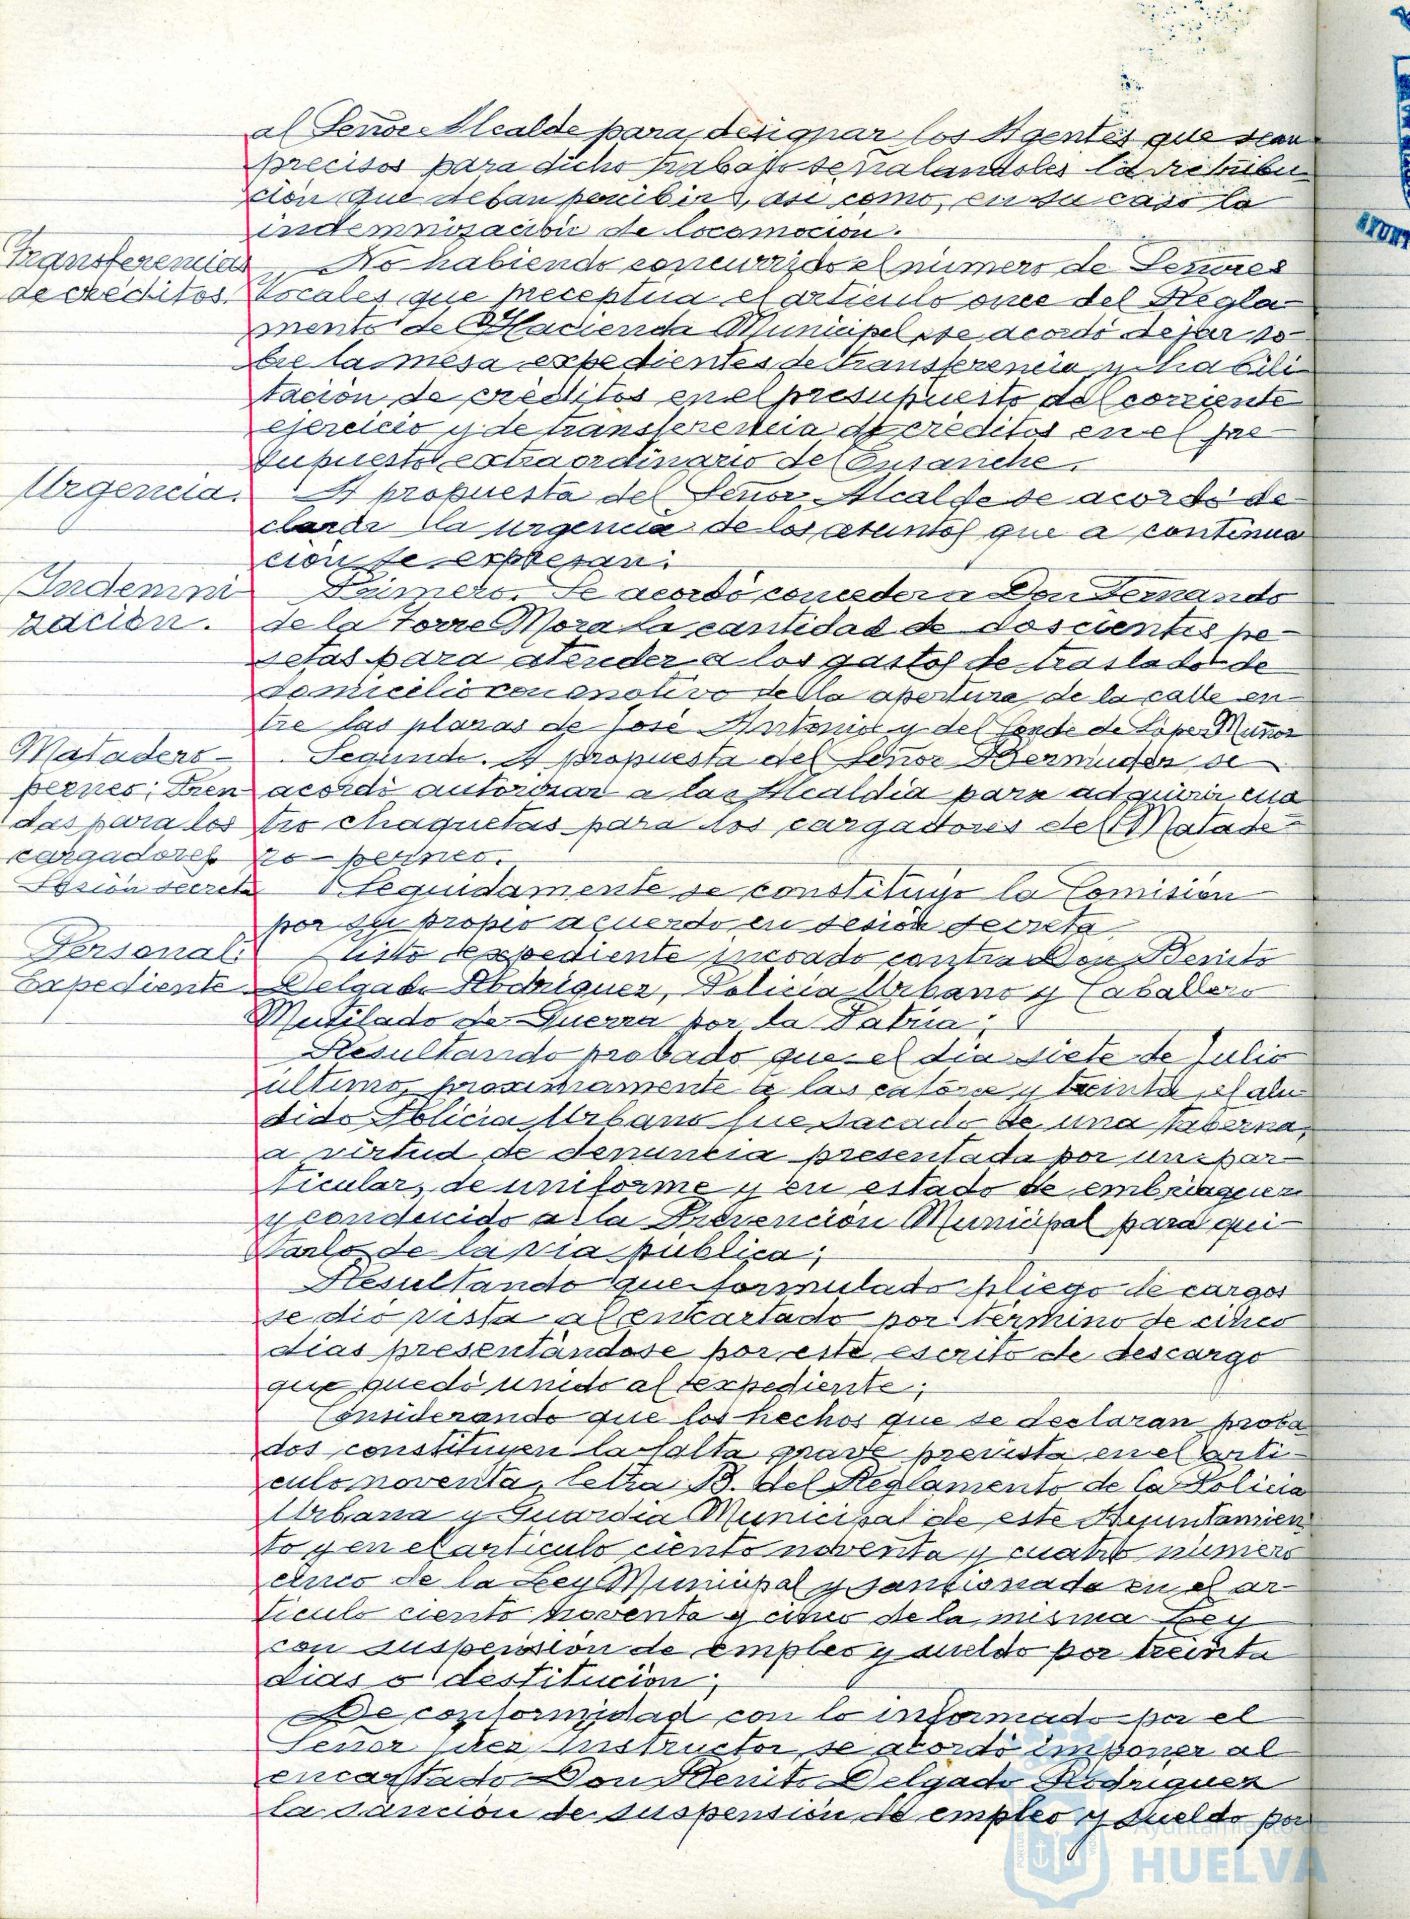 al Señor Alcalde para designar los Agentes que sean
precisos para dicho trabajo señalandoles la retribu-
ción que deban percibir, asi como, en su caso la
indemnización de locomoción.
Transferencias
de creditos.
No habiendo concurrido el número de Señores
Vocales que preceptúa el articulo once del Regla-
mento de Hacienda Municipal, se acordó dejar so-
bre la mesa expedientes de transferencia y habili
tación de créditos en el presupuesto del corriente
ejercicio y de transferencia de créditos en el pre-
supuesto extraordinario del Ensanche.
Urgencia.
A propuesta del Señor Alcalde se acordó de-
clarar la urgencia de los asuntos que a continua
ción se expresan:
Indemni
zación.
Primero. Se acordó conceder a Don Fernando
de la Torre Mora la cantidad de doscientas pe-
setas para atender a los gastos de traslado de
domicilio con motivo de la apertura de la calle en-
tre las plazas de José Antonio y del Conde de López Muñoz
Matadero-
perneo: Pren
das para los
cargadores
Segundo. A propuesta del Señor Bermúdez se
acordó autorizar a la Alcaldía para adquirir cua
tro chaquetas para los cargadores del Matade-
ro-perneo.
Sesión secreta
Seguidamente se constituyó la Comisión
por su propio acuerdo en sesión secreta.
Personal:
Expediente
Visto expediente incoado contra Don Benito
Delgado Rodriguez, Policia Urbano y Caballero
Mutilado de Guerra por la Patria;
Resultando probado que el dia siete de Julio
último, proximamente a las catorce y treinta, el alu
dido Policia Urbano fue sacado de una taberna,
a virtud de denuncia presentada por un par-
ticular, de uniforme y en estado de embriaguez
y conducido a la Prevención Municipal para qui-
tarlo de la via pública;
Resultando que formulado pliego de cargos
se dió vista al encartado por término de cinco
dias presentándose por este escrito de descargo
que quedó unido al expediente;
Considerando que los hechos que se declaran proba
dos constituyen la falta grave prevista en el arti-
culo noventa, letra B. del Reglamento de la Policia
Urbana y Guardia Municipal de este Ayuntamien
to y en el articulo ciento noventa y cuatro número
cinco de la Ley Municipal y sancionada en el ar-
ticulo ciento noventa y cinco de la misma Ley
con suspensión de empleo y sueldo por treinta
dias o destitución;
De conformidad con lo informado por el
Señor Juez Instructor, se acordó imponer al
encartado Don Benito Delgado Rodriguez
la sanción de suspensión de empleo y sueldo por
Ayuntamiento de
HUELVA